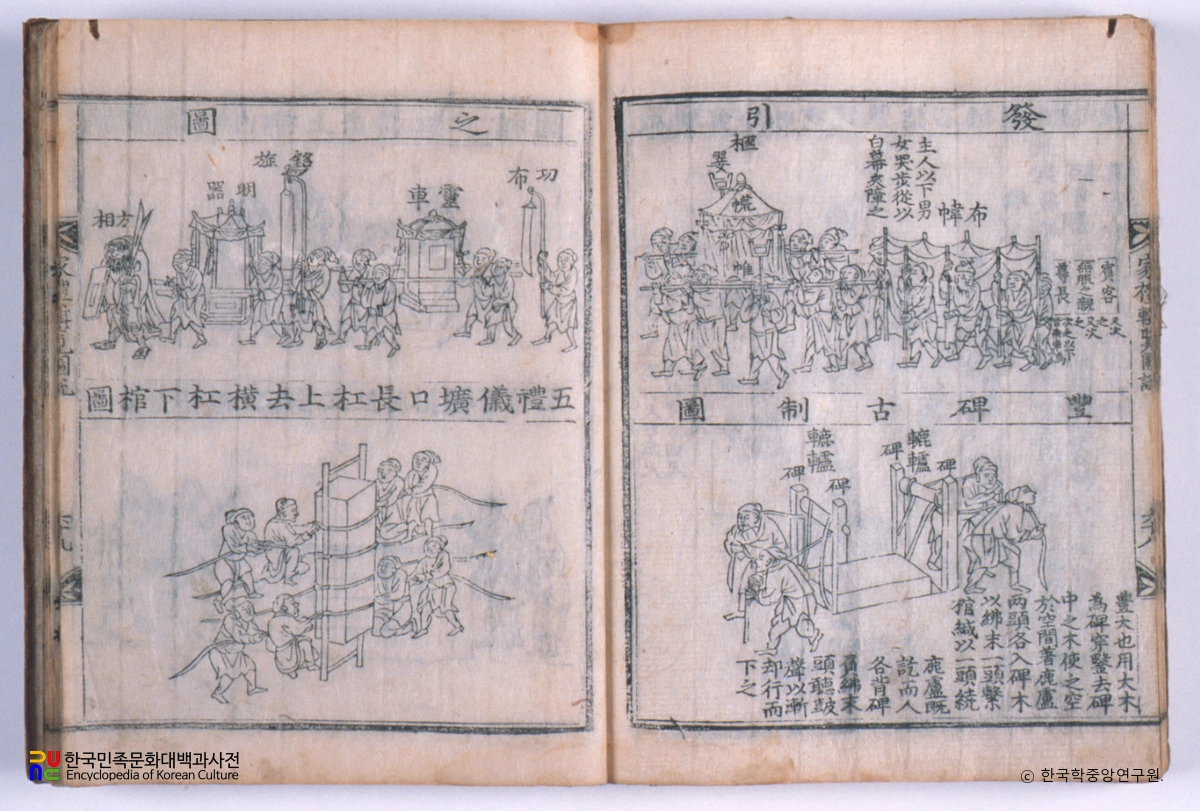 發引
之圖
主人以下男
女哭步從以
白幕夾障之
布幃
賓客
又次
之
尊長
柩
翣
㡆
帷
功布
靈車
銘旌
明器
方相
豐碑古制圖
轆轤
碑
碑
轆轤
碑
碑
豐大也用大木
為碑穿鑿去碑
中之木使之空
於空間著鹿盧
兩頭各入碑木
以綍末一頭繫
棺緘以一頭繞
鹿盧既
訖而人
各背碑
負綍末
頭聽鼓
聲以漸
却行而
下之
五禮儀壙口長杠上去橫杠下棺圖
家禮輯覽圖說
한국민족문화대백과사전
Encyclopedia of Korean Culture
ⓒ 한국학중앙연구원.